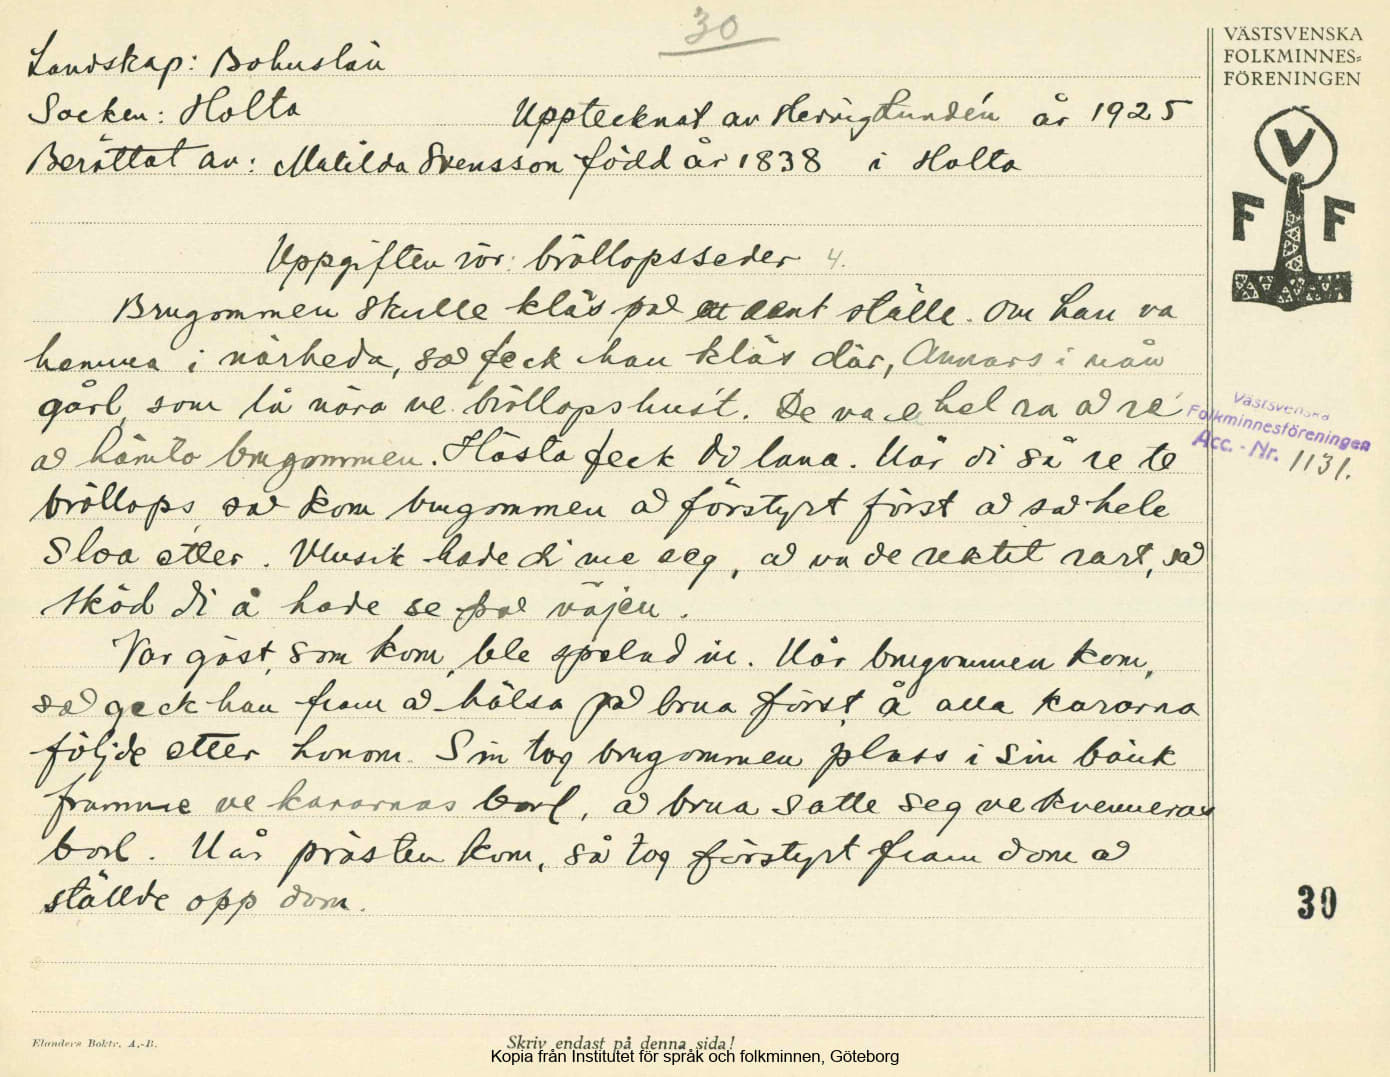 30
Landskap: Bohuslän
Socken: Holta Upptecknat av Hedvig Lundén år 1925
Berättat av: Matilda Svensson född år 1838 i Holta
Uppgiften rör: bröllopsseder 4.
Brugommen skulle kläs på ställe. Om han va
hemma i närheda, så feck han kläs där, Annars i nån
gårl, som lå nära ve bröllopshus't. De va e hel ra å re
å hämta brugommen. Hästa feck di lana. Når di så re te
bröllops så kom brugommen å förstyrt först å så hele
sloa etter. Musik hade di me seg, å va de rektit rart, så
sköd di å hade se på väjen.
Var gäst, som kom, ble spelad in. Når brugommen kom,
så geck han fram å hälsa på brua först å alla kararna
följde etter honom. Sin tog brugommen plass i sin bänk
framme ve kararnas borl, å brua satte seg ve kvenneras
borl. Når prästen kom, så tog förstyrt fram dom å
ställde opp dom.
VÄSTSVENSKA
FOLKMINNES=
FÖRENINGEN
V
F F
Västsvenska
Folkminnesföreningen
Acc. - Nr. 1131.
30
Elanders Boktr. A.-B.
Skriv endast på denna sida!
Kopia från Institutet för språk och folkminnen, Göteborg